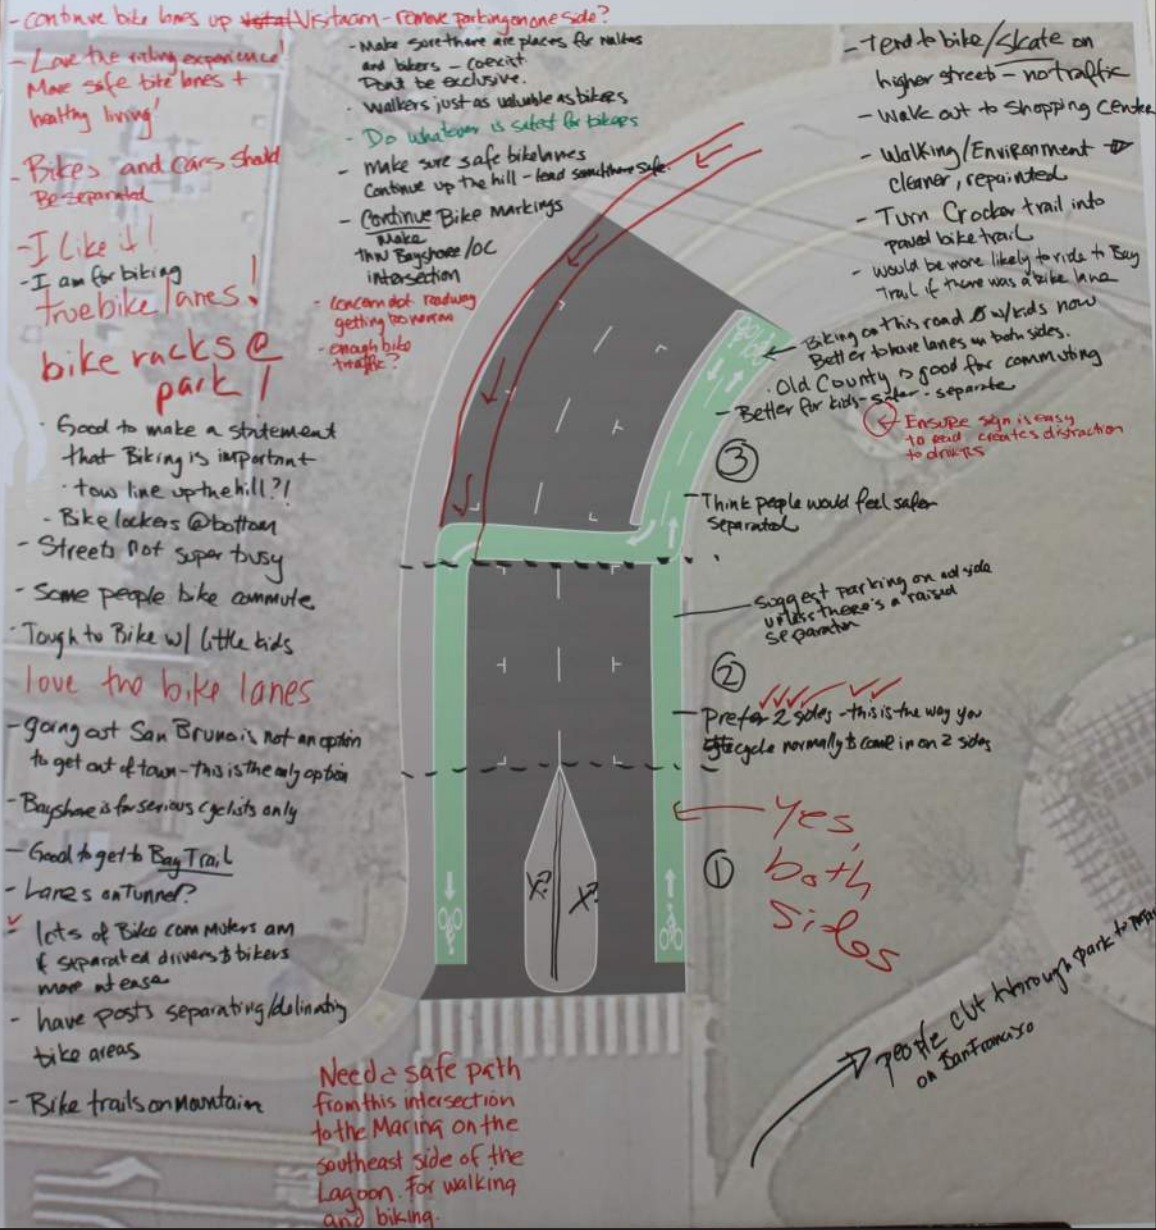 - continue bike lanes up Visitacion - remove parking on one side?
- Love the riding experience!
More safe bike lanes +
healthy living!
- Bikes and cars should
Be separated
- I Like it!
- I am for biking
true bike lanes!
bike racks @
park!
· Good to make a statement
that Biking is important
· tow line up the hill?!
- Bike lockers @ bottom
- Streets not super busy
- Some people bike commute
· Tough to Bike w/ little kids
love the bike lanes
- going out San Bruno is not an option
to get out of town - this is the only option
- Bayshore is for serious cyclists only
- Good to get to Bay Trail
- Lanes on Tunnel?
lots of Bike commuters am
& separated drivers & bikers
more at ease
- have posts separating/delinating
bike areas
- Bike trails on mountain
- Make sure there are places for walkers
and bikers - coexist
Don't be exclusive.
· Walkers just as valuable as bikers
- Do whatever is safest for bikers
- make sure safe bike lanes
Continue up the hill - lead somewhere safe.
- Continue Bike Markings
Make
thru Bayshore/OC
intersection
- concern abt roadway
getting too narrow
- enough bike
traffic?
- Tend to bike/skate on
higher street - no traffic
- Walk out to shopping center
- Walking/Environment
cleaner, repainted
- Turn Crocker trail into
paved bike trail
- would be more likely to ride to Bay
Trail if there was a bike lane
Biking on this road w/kids now
Better to have lanes on both sides.
· Old County is good for commuting
- Better for kids - safer - separate
Ensure sign is easy
to read, creates distraction
to drivers
3
- Think people would feel safer
separated
suggest parking on side
unless there's a raised
separator
2
- prefer 2 sides - this is the way you
cycle normally to come in on 2 sides
X? X?
1
Yes,
both
sides
people cut through park to
on San Francisco
Need a safe path
from this intersection
to the Marina on the
southeast side of the
Lagoon. For walking
and biking.